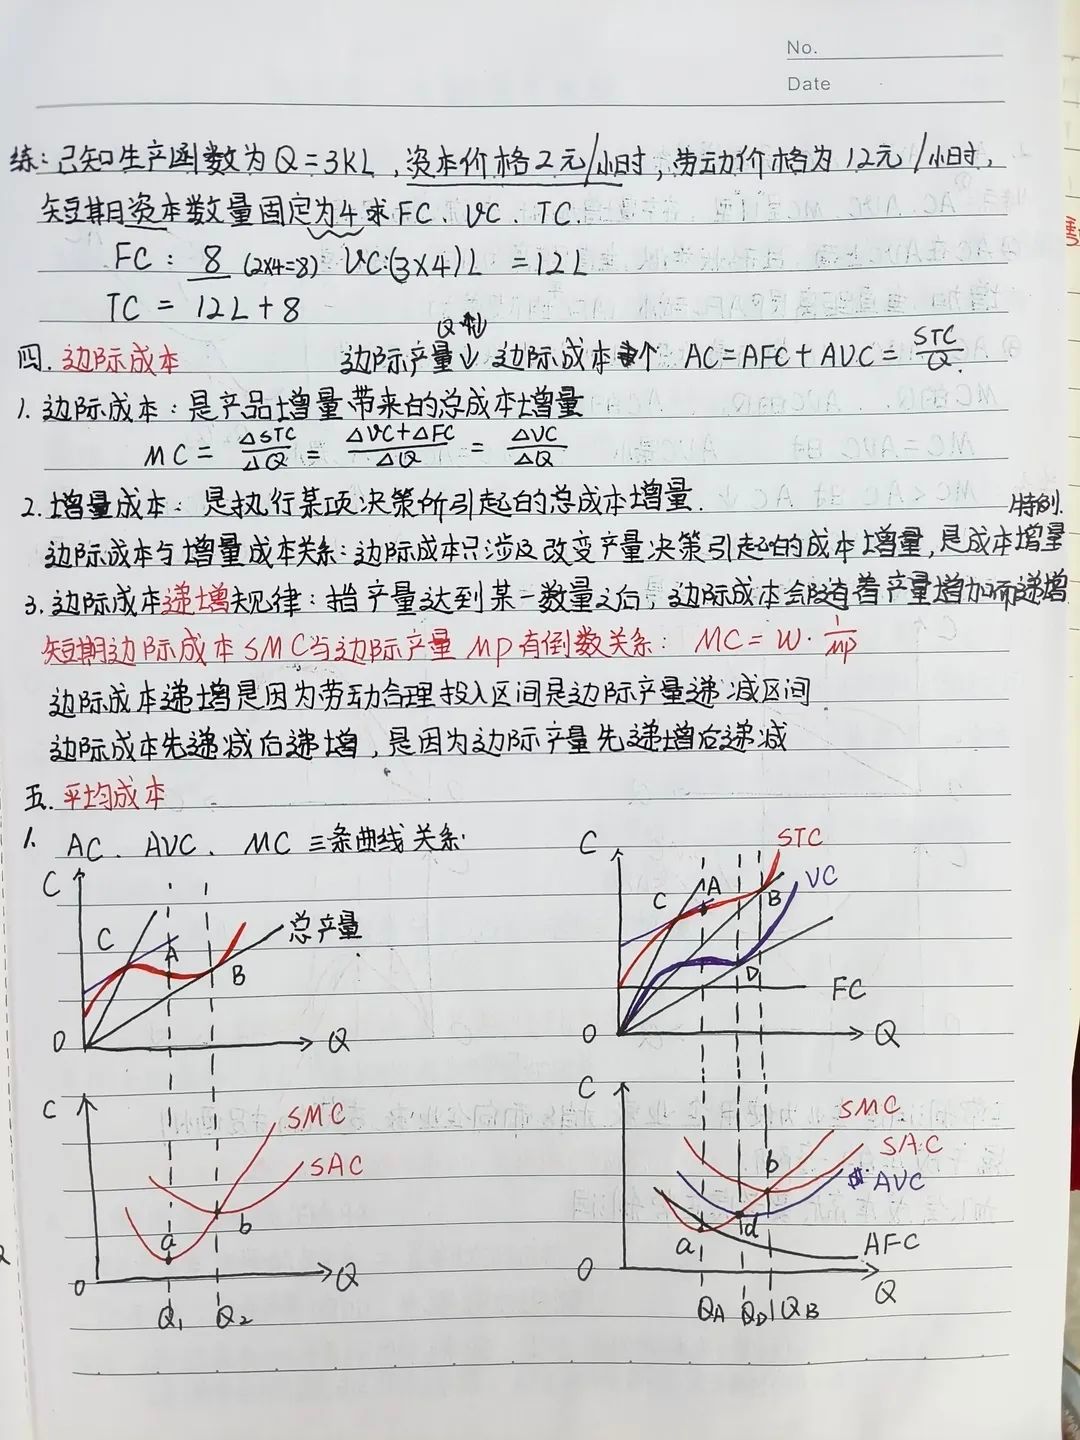 No.
Date
练：已知生产函数为Q=3KL，资本价格2元/小时，劳动价格为12元/小时，
短期资本数量固定为4求FC、VC、TC.
FC: 8 (2×4=8) VC:(3×4)L =12L
TC = 12L+8
四. 边际成本 边际产量↓ 边际成本↑ AC=AFC+AVC=STC/Q.
1. 边际成本：是产品增量带来的总成本增量
MC = △STC/△Q = △VC+△FC/△Q = △VC/△Q
2. 增量成本：是执行某项决策所引起的总成本增量. 特例.
边际成本与增量成本关系：边际成本只涉及改变产量决策引起的成本增量，是成本增量
3. 边际成本递增规律：指产量达到某一数量之后，边际成本会随着产量增加而递增
短期边际成本SMC与边际产量MP有倒数关系： MC = W·1/MP
边际成本递增是因为劳动合理投入区间是边际产量递减区间
边际成本先递减后递增，是因为边际产量先递增后递减
五. 平均成本
1. AC、AVC、MC 三条曲线关系·
C C A B 总产量 O Q
C STC C A B VC D FC O Q
C SMC SAC a b O Q Q1 Q2
C SMC SAC AVC b d a AFC O Q QA QD QB